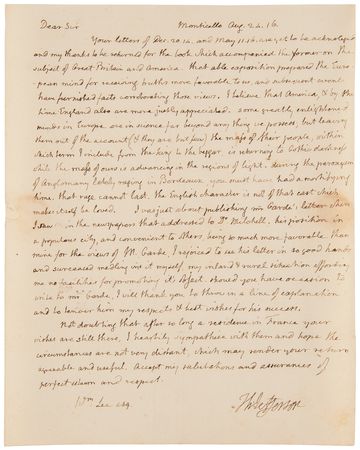 Dear Sir Monticello Aug. 24. 16.
Your letters of Dec. 20. 14. and May 11. 16. are yet to be acknoleged
and my thanks to be returned for the book which accompanied the former on the
subject of Great Britain and America. that able exposition prepared the Euro-
pean mind for recieving truths more favorable to us, and subsequent events
have furnished facts corroborating those views. I believe that America, & by this
time England also are more justly appreciated. some greatly enlightened
minds in Europe are in science far beyond any thing we possess. but leaving
them out of the account (& they are but few) the mass of their people, within
which term I include from the king to the beggar is returning to Gothic darkness
while the mass of ours is advancing in the regions of light. during the paroxysm
of Anglomany lately raging in Bordeaux you must have had a mortifying
time. that rage cannot last. the English character is not of that cast which
makes itself be loved. I was just about publishing mr Garde's letter when
I saw in the newspapers that addressed to Dr. Mitchell. his position in
a populous city, and convenient to others, being so much more favorable than
mine for the views of M. Garde, I rejoiced to see his letter in so good hands
and surceased medling in it myself, my inland & rural situation affording
me no facilities for promoting it's effect. should you have occasion to
write to mr Garde, I will thank you to throw in a line of explanation
and to tender him my respects & best wishes for his success.
Not doubting that after so long a residence in France your
wishes are still there, I heartily sympathise with them and hope the
circumstances are not very distant, which may render your return
agreeable and useful. Accept my salutations and assurances of
perfect esteem and respect.
Wm Lee esq. Th: Jefferson